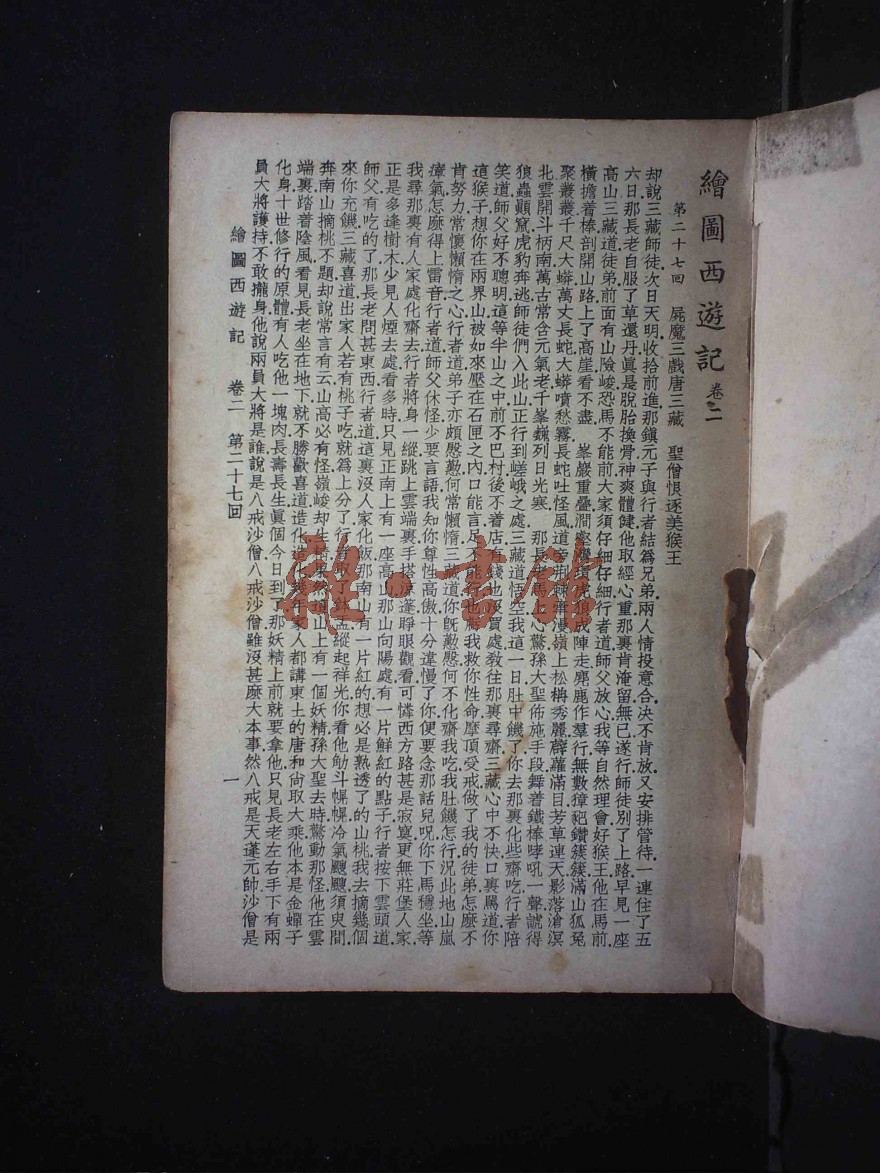 繪圖西遊記 卷二
第二十七回 屍魔三戲唐三藏 聖僧恨逐美猴王
却說三藏師徒次日天明.收拾前進.那鎭元子與行者結爲兄弟.兩人情投意合.決不肯放.又安排管待.一連住了五
六日.那長老自服了草還丹.眞是脫胎換骨.神爽體健.他取經心重.那裏肯淹留.無已遂行.師徒別了上路.早見一座
高山.三藏道.徒弟.前面有山險峻.恐馬不能前.大家須仔細仔細.行者道.師父放心.我等自然理會.好猴王.他在馬前.
橫擔着棒.剖開山路.上了高崖.看不盡 峯巖重疊.澗壑灣環.虎狼成陣走.麂鹿作羣行.無數獐豝鑽簇簇.滿山狐兔
聚叢叢.千尺大蟒.萬丈長蛇.大蟒噴愁霧.長蛇吐怪風.道旁荆棘牽漫.嶺上松柟秀麗.薜蘿滿目.芳草連天.影落滄溟
北.雲開斗柄南.萬古常含元氣老.千峯巍列日光寒 那長老馬上心驚.孫大聖佈施手段.舞着鐵棒.哮吼一聲.諕得
狼蟲顚竄.虎豹奔逃.師徒們入此山.正行到嵯峨之處.三藏道.悟空.我這一日.肚中饑了.你去那裏化些齋吃.行者陪
笑道.師父好不聰明.這等半山之中.前不巴村.後不着店.有錢也沒買處.敎往那裏尋齋.三藏心中不快.口裏罵道.你
這猴子.想你在兩界山.被如來壓在石匣之內.口能言.足不能行.也虧我救你性命.摩頂受戒.做了我的徒弟.怎麼不
肯努力.常懷懶惰之心.行者道.弟子亦頗慇懃.何常懶惰.三藏道.你旣懃慇.何不化齋我吃.我肚饑怎行.況此地山嵐
瘴氣.怎麼得上雷音.行者道.師父休怪.少要言語.我知你尊性高傲.十分違慢了你.便要念那話兒呪.你下馬穩坐.等
我尋那裏有人家處化齋去.行者將身一縱.跳上雲端裏.手搭涼蓬.睜眼觀看.可憐西方路甚是寂寞.更無莊堡人家.
正是多逢樹木.少見人煙去處.看多時.只見正南上有一座高山.那山向陽處.有一片鮮紅的點子.行者按下雲頭道.
師父有吃的了.那長老問甚東西.行者道.這裏沒人家化飯.那南山有一片紅的.想必是熟透了的山桃.我去摘幾個
來你充饑.三藏喜道.出家人若有桃子吃.就爲上分了.行者取了鉢盂.縱起祥光.你看他觔斗幌幌.冷氣颼颼.須臾間.
奔南山摘桃不題.却說常言有云.山高必有怪.嶺峻却生精.果然這山上有一個妖精.孫大聖去時驚動那怪.他在雲
端裏踏着陰風.看見長老坐在地下.就不勝歡喜道.造化造化.幾年家人都講東土的唐和尙取大乘.他本是金蟬子
化身.十世修行的原體.有人吃他一塊肉.長壽長生.眞個今日到了.那妖精上前就要拿他.只見長老左右手下有兩
員大將護持.不敢攏身.他說兩員大將是誰.說是八戒沙僧.八戒沙僧雖沒甚麽大本事.然八戒是天蓬元帥.沙僧是
繪圖西遊記 卷二 第二十七回 一
雅·書館